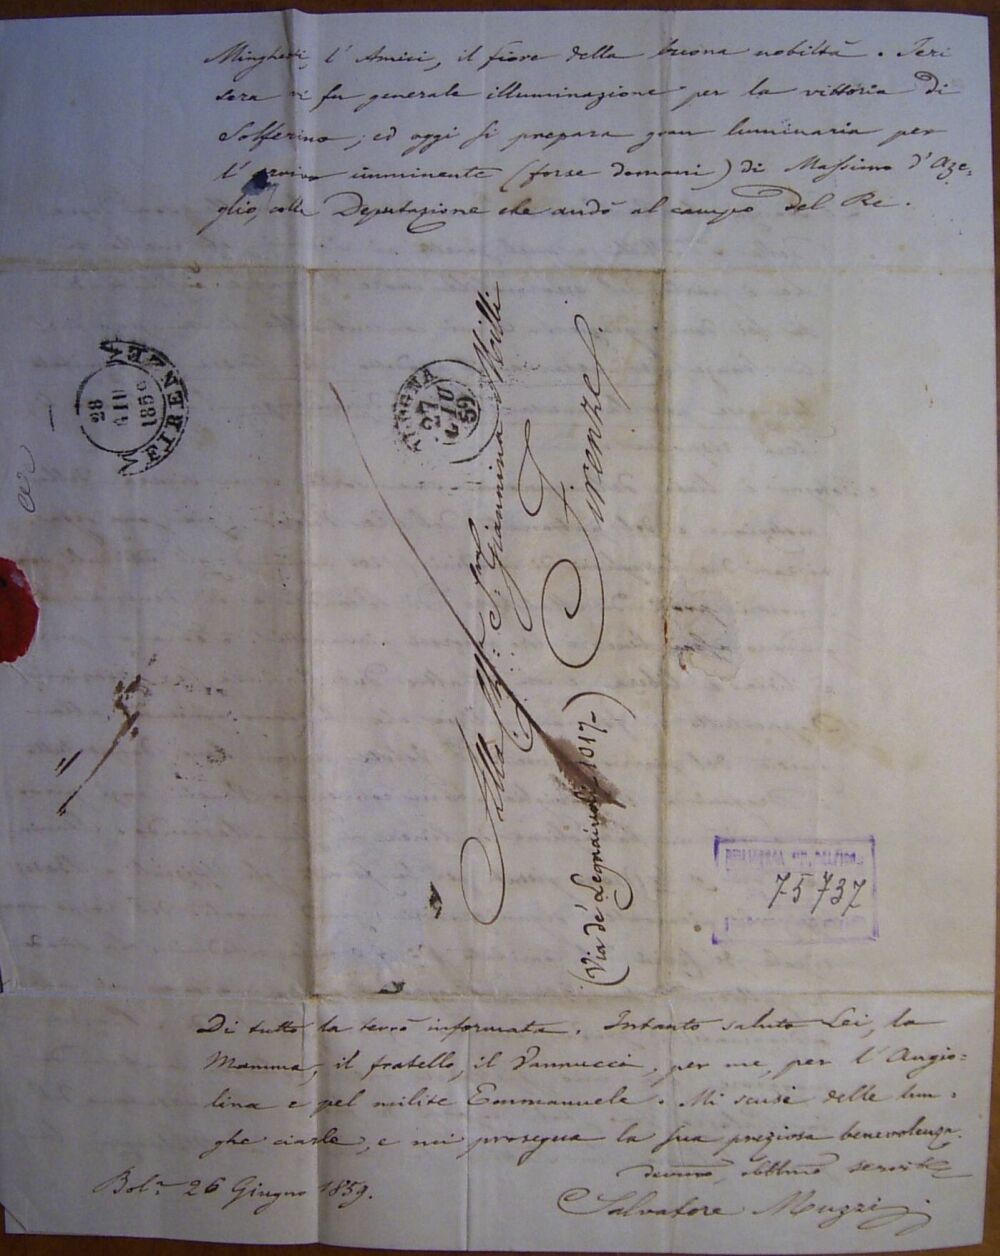 Minghetti, l'Amici, il fiore della buona nobiltà. Ieri
sera vi fu generale illuminazione per la vittoria di
Solferino; ed oggi si prepara gran luminaria per
l'arrivo imminente (forse domani) di Massimo d'Aze-
glio, colla Deputazione che andò al campo del Re.
FIRENZE
28
GIU
1859
BOLOGNA
27
GIU
59
Alla
S.ra Giannina Milli
Firenze
(Via de' Legnaiuoli 1017-)
75737
Di tutto la terrò informata. Intanto saluto Lei, la
Mamma, il fratello, il Vannucci, per me, per l'Angio=
lina e pel milite Emmanuele. Mi scusi delle lun-
ghe ciarle, e mi prosegua la sua preziosa benevolenza.
Bol.a 26 Giugno 1859.
Salvatore Muzzi